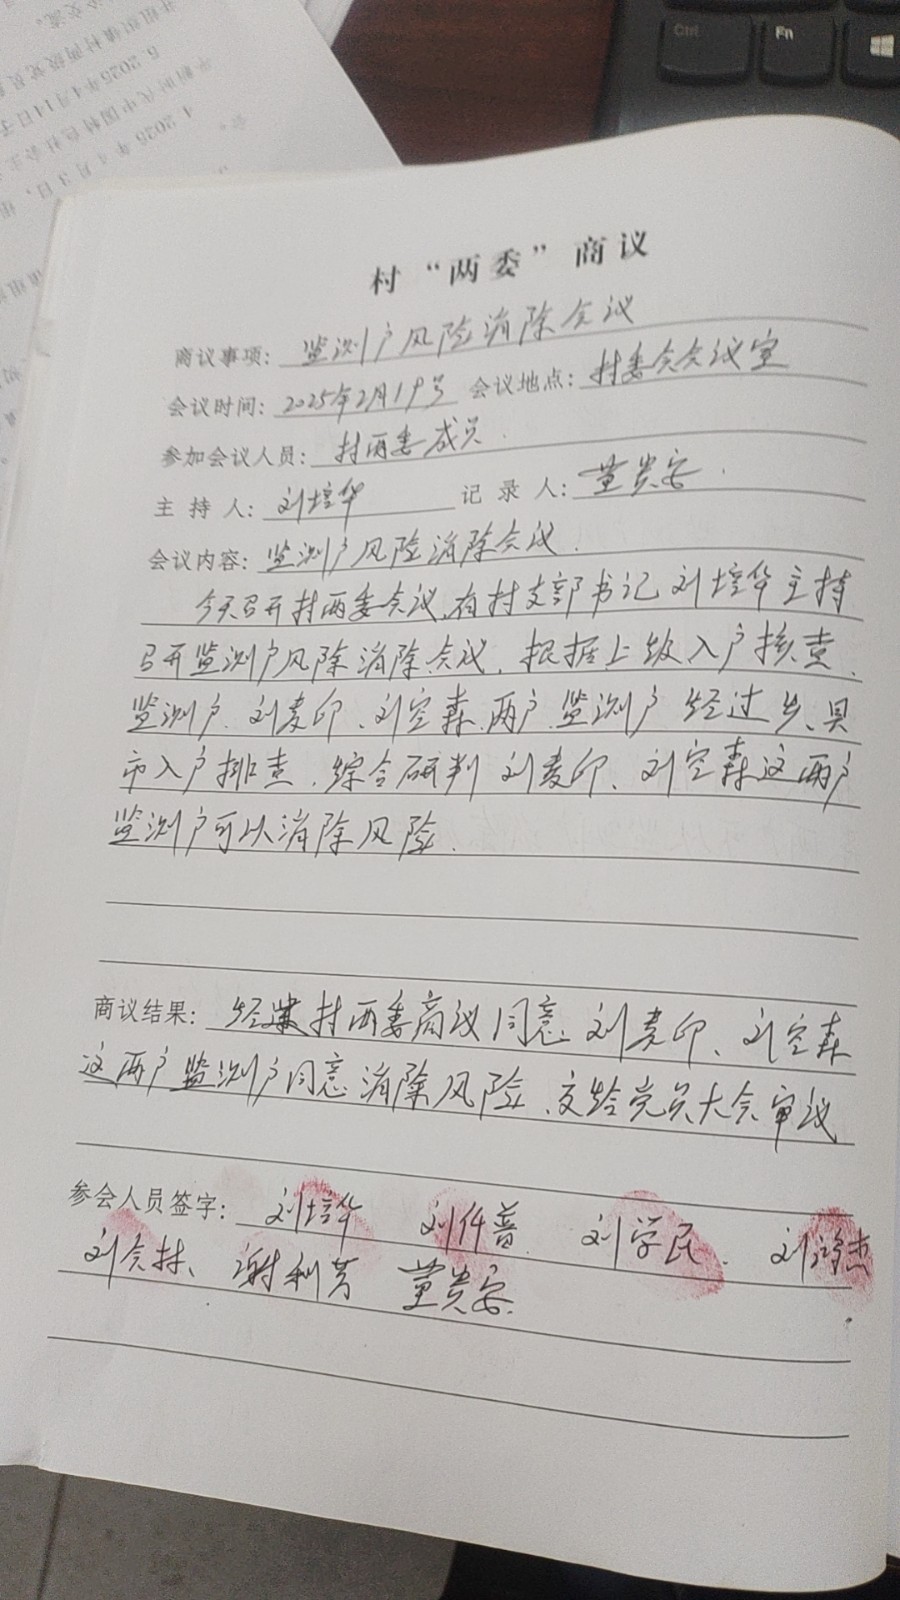 Ctrl
Fn
村“两委”商议
商议事项：监测户风险消除会议
会议时间：2025年2月19号 会议地点：村委会会议室
参加会议人员：村两委成员.
主持人：刘培华 记录人：董贵安.
会议内容：监测户风险消除会议.
今天召开村两委会议,有村支部书记刘培华主持
召开监测户风险消除会议.根据上级入户核查、
监测户、刘麦印、刘空森两户监测户经过乡、县
市入户排查.综合研判刘麦印、刘空森这两户
监测户可以消除风险.
商议结果：经村两委商议同意刘麦印、刘空森
这两户监测户同意消除风险、交给党员大会审议
参会人员签字：刘培华 刘仟普. 刘学民. 刘鸿杰
刘会林、谢利芳 董贵安.